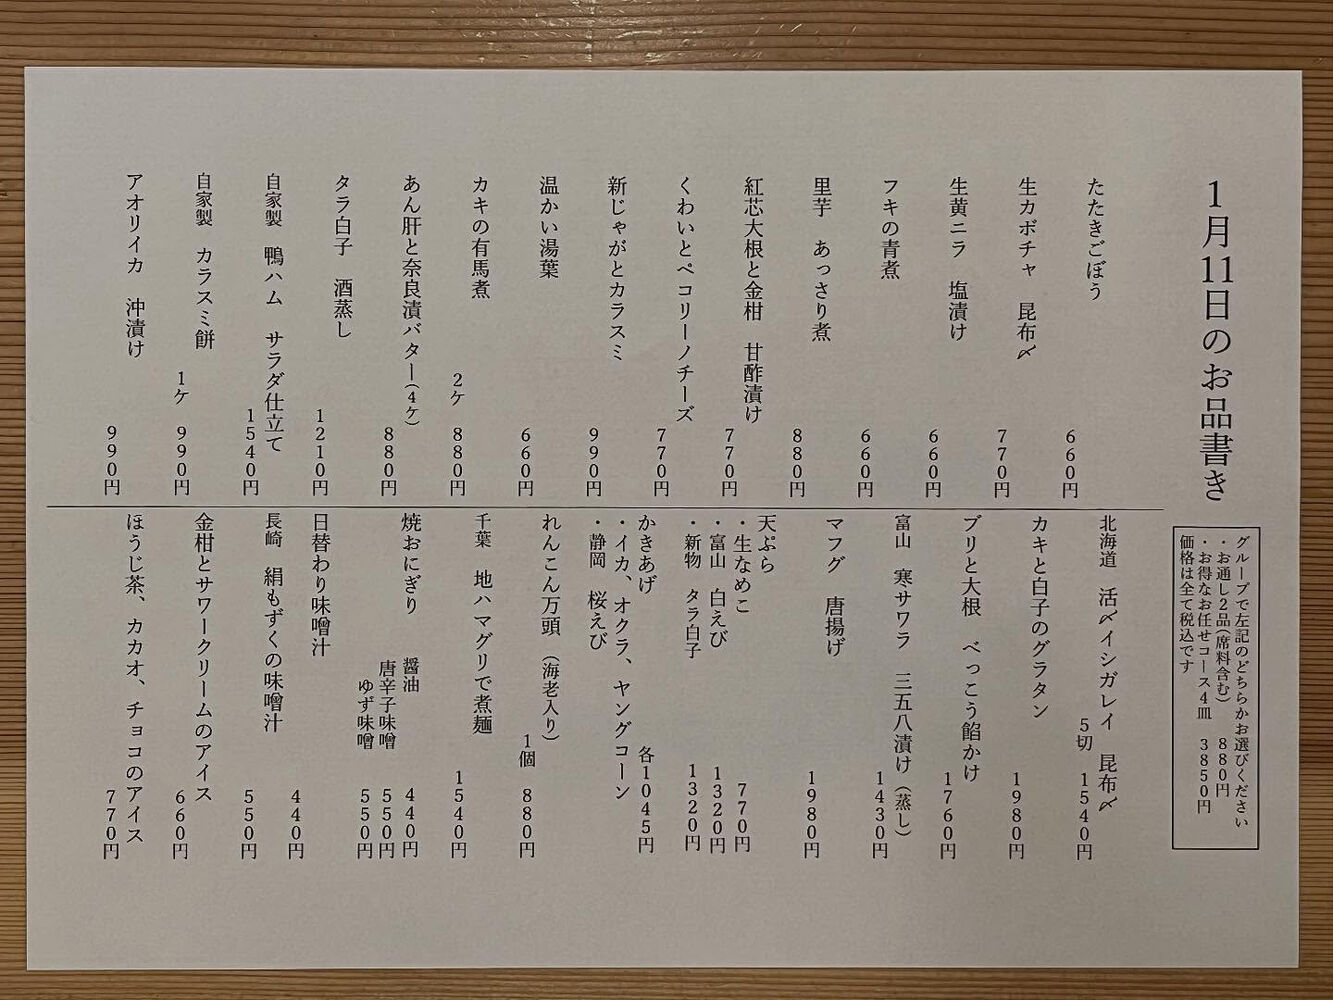 1月11日のお品書き
グループで左記のどちらかお選びください
・お通し2品(席料含む) 880円
・お得なお任せコース4皿 3850円
価格は全て税込です
たたきごぼう 660円
生カボチャ 昆布〆 770円
生黄ニラ 塩漬け 660円
フキの青煮 660円
里芋 あっさり煮 880円
紅芯大根と金柑 甘酢漬け 770円
くわいとペコリーノチーズ 770円
新じゃがとカラスミ 990円
温かい湯葉 660円
カキの有馬煮 2ケ 880円
あん肝と奈良漬バター(4ケ) 880円
タラ白子 酒蒸し 1210円
自家製 鴨ハム サラダ仕立て 1540円
自家製 カラスミ餅 1ケ 990円
アオリイカ 沖漬け 990円
北海道 活〆イシガレイ 昆布〆 5切 1540円
カキと白子のグラタン 1980円
ブリと大根 べっこう餡かけ 1760円
富山 寒サワラ 三五八漬け(蒸し) 1430円
マフグ 唐揚げ 1980円
天ぷら
・生なめこ 770円
・富山 白えび 1320円
・新物 タラ白子 1320円
かきあげ 各1045円
・イカ、オクラ、ヤングコーン
・静岡 桜えび
れんこん万頭(海老入り) 1個 880円
千葉 地ハマグリで煮麺 1540円
焼おにぎり 醤油 440円
唐辛子味噌 550円
ゆず味噌 550円
日替わり味噌汁 440円
長崎 絹もずくの味噌汁 550円
金柑とサワークリームのアイス 660円
ほうじ茶、カカオ、チョコのアイス 770円